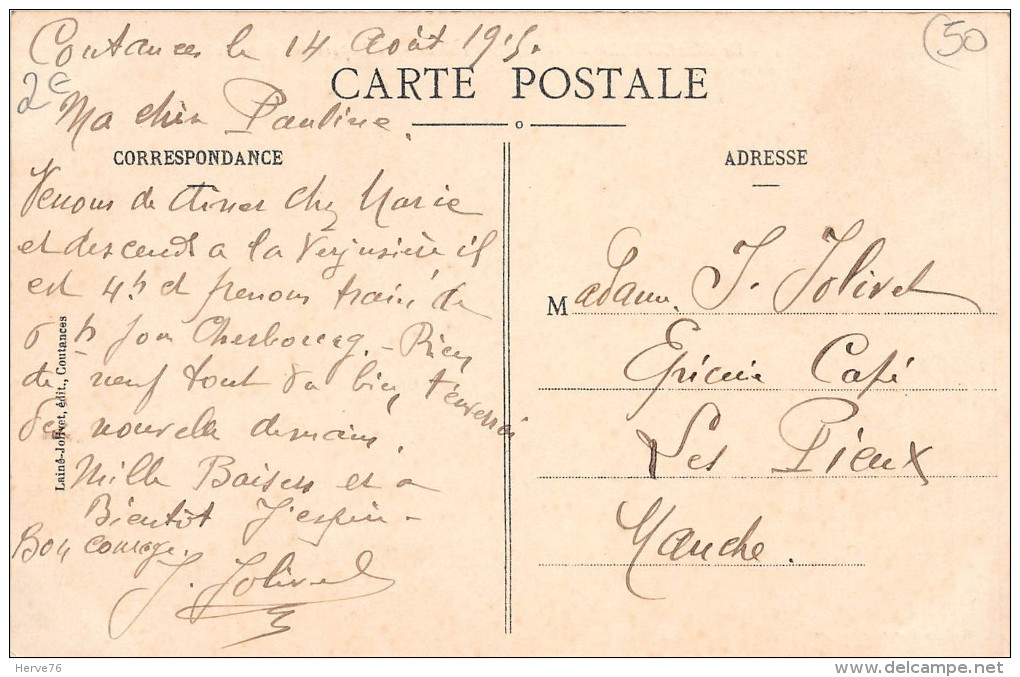 Coutances le 14 Août 1915.
(50)
2e
CARTE POSTALE
Ma chère Pauline.
CORRESPONDANCE
ADRESSE
Venons de diner chez Marie
et descends a la Verjusière il
est 4h et prenons train de
6h pour Cherbourg. - Rien
de neuf tout va bien, t'enverrai
des nouvelle demain.
Mille Baisers et a
Bientôt J'espère -
Bon courage.
J. Jolivet
Madame J. Jolivet
Epicerie Café
Les Pieux
Manche.
Lainé-Jolivet, édit., Coutances
Herve76
delcampe.net